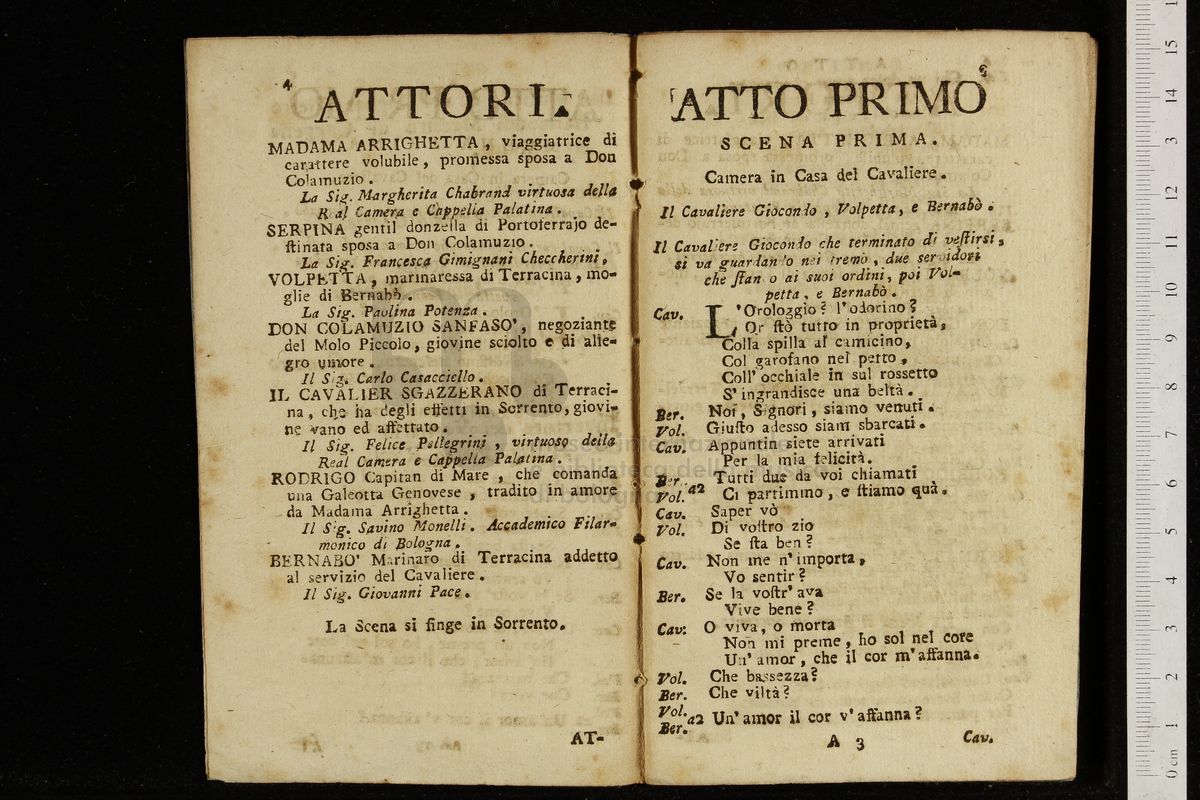 4
ATTORI.
MADAMA ARRIGHETTA, viaggiatrice di
carattere volubile, promessa sposa a Don
Colamuzio.
La Sig. Margherita Chabrand virtuosa della
Real Camera e Cappella Palatina.
SERPINA gentil donzella di Portoferrajo de-
ſtinata sposa a Don Colamuzio.
La Sig. Francesca Gimignani Checcherini,
VOLPETTA, marinaressa di Terracina, mo-
glie di Bernabò.
La Sig. Paolina Potenza.
DON COLAMUZIO SANFASO', negoziante
del Molo Piccolo, giovine sciolto e di alle-
gro umore.
Il Sig. Carlo Casacciello.
IL CAVALIER SGAZZERANO di Terraci-
na, che ha degli effetti in Sorrento, giovi-
ne vano ed affettato.
Il Sig. Felice Pellegrini, virtuoso della
Real Camera e Cappella Palatina.
RODRIGO Capitan di Mare, che comanda
una Galeotta Genovese, tradito in amore
da Madama Arrighetta.
Il Sig. Savino Monelli. Accademico Filar-
monico di Bologna.
BERNABO' Marinaro di Terracina addetto
al servizio del Cavaliere.
Il Sig. Giovanni Pace.
La Scena si finge in Sorrento.
AT-
ATTO PRIMO
SCENA PRIMA.
Camera in Casa del Cavaliere.
Il Cavaliere Giocondo, Volpetta, e Bernabò.
Il Cavaliere Giocondo che terminato di veſtirsi,
si va guardando nei tremò, due servidori
che ſtanno ai suoi ordini, poi Vol-
petta, e Bernabò.
Cav. L'Orologgio? l'odorino?
Or ſtò tutto in proprietà,
Colla spilla al camicino,
Col garofano nel petto,
Coll'occhiale in sul rossetto
S'ingrandisce una beltà.
Ber. Noi, Signori, siamo venuti.
Vol. Giuſto adesso siam sbarcati.
Cav. Appuntin siete arrivati
Per la mia felicità.
Ber. Vol. a2 Tutti due da voi chiamati
Ci partimmo, e ſtiamo quà.
Cav. Saper vò
Vol. Di voſtro zio
Se ſta ben?
Cav. Non me n'importa,
Vo sentir?
Ber. Se la voſtr'ava
Vive bene?
Cav: O viva, o morta
Non mi preme, ho sol nel core
Un'amor, che il cor m'affanna.
Vol. Che bassezza?
Ber. Che viltà?
Vol. Ber. a2 Un'amor il cor v'affanna?
A 3
Cav.
0 cm 1 2 3 4 5 6 7 8 9 10 11 12 13 14 15